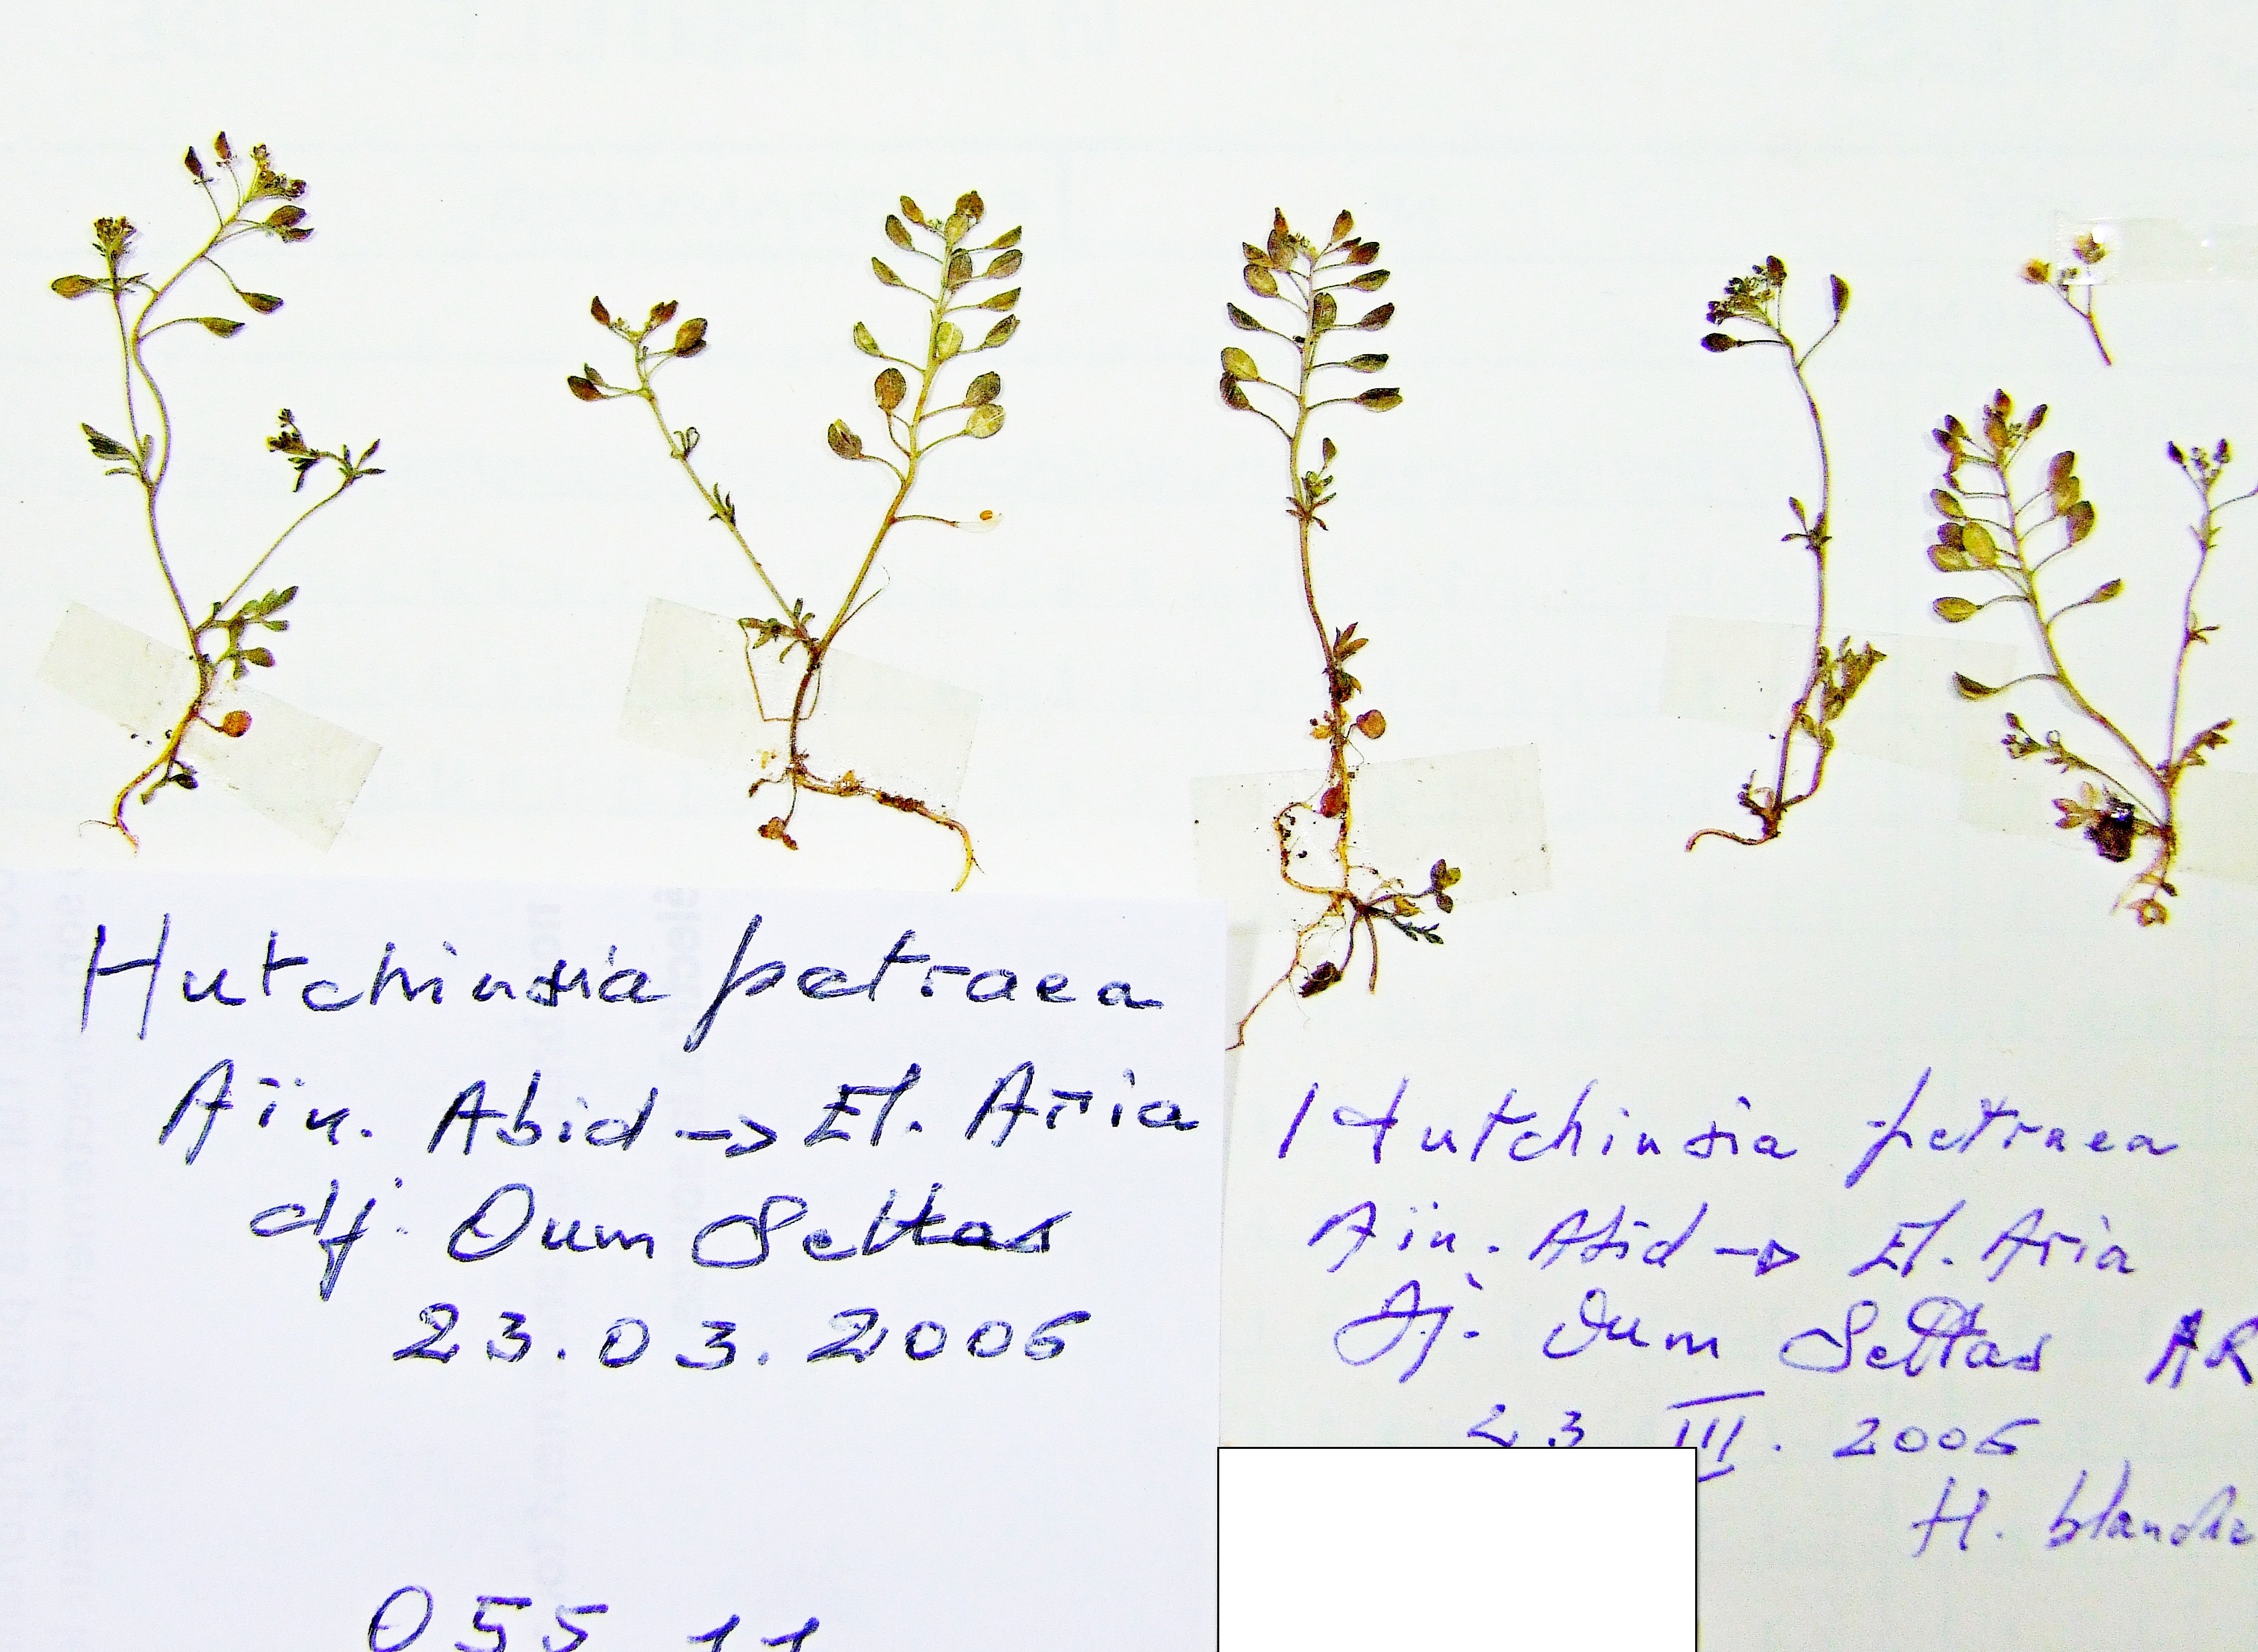 Hutchinsia petraea
Aïn. Abid → El. Aria
dj. Oum Settas
23.03.2006
055 11
Hutchinsia petraea
Aïn. Abid → El. Aria
Dj. Oum Settas AR
23 III. 2006
H. blanche